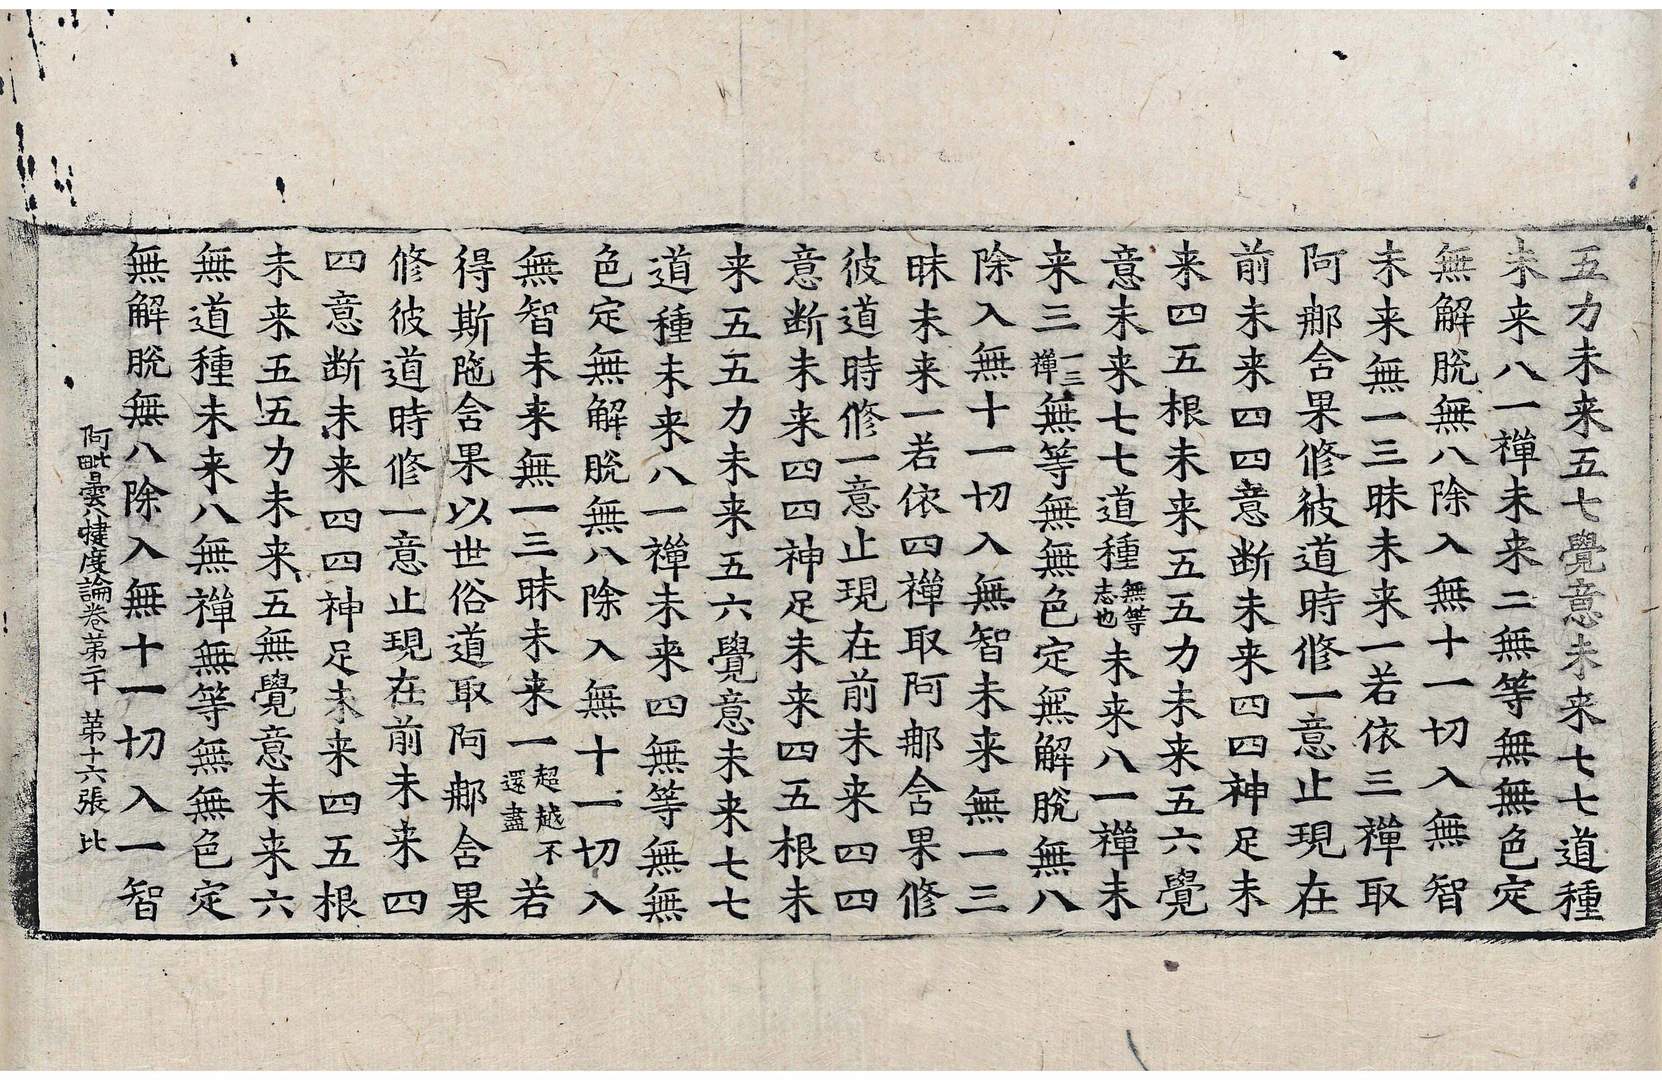 五力未来五七覺意未来七七道種
未来八一禪未来二無等無無色定
無解脫無八除入無十一切入無智
未来無一三昧未来一若依三禪取
阿那含果修彼道時修一意止現在
前未来四四意断未来四四神足未
来四五根未来五五力未来五六覺
意未来七七道種無等志也未来八一禪未
来三一三禪無等無無色定無解脫無八
除入無十一切入無智未来無一三
昧未来一若依四禪取阿那含果修
彼道時修一意止現在前未来四四
意断未来四四神足未来四五根未
来五五力未来五六覺意未来七七
道種未来八一禪未来四無等無無
色定無解脫無八除入無十一切入
無智未来無一三昧未来一超越不還盡若
得斯陁含果以世俗道取阿那含果
修彼道時修一意止現在前未来四
四意断未来四四神足未来四五根
未来五五力未来五無覺意未来六
無道種未来八無禪無等無無色定
無解脫無八除入無十一切入一智
阿毗曇犍度論卷第二十 第十六張 比